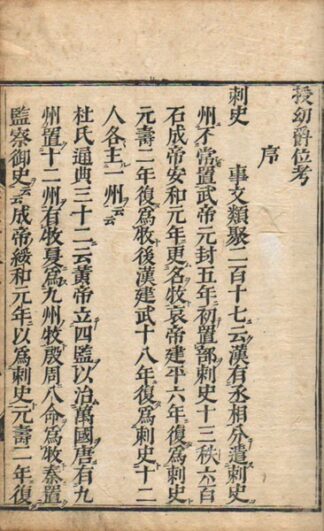 授幼爵位考
序
刺史 事文類聚二百十七云漢有丞相分遣刺史
州不常置武帝元封五年初置部刺史十三秩六百
石成帝安和元年更名牧哀帝建平六年復爲刺史
元壽二年復爲牧後漢建武十八年復爲刺史十二
人各主一州云云
杜氏通典三十二云黃帝立四監以治萬國唐有九
州置十二州有牧夏爲九州牧殷周八命爲牧秦置
監察御史云云成帝綏和元年以爲刺史元壽二年復